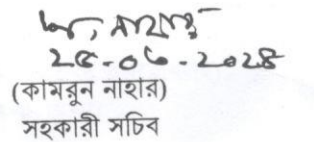 ২৫-০৬-২০২৪
(কামরুন নাহার)
সহকারী সচিব